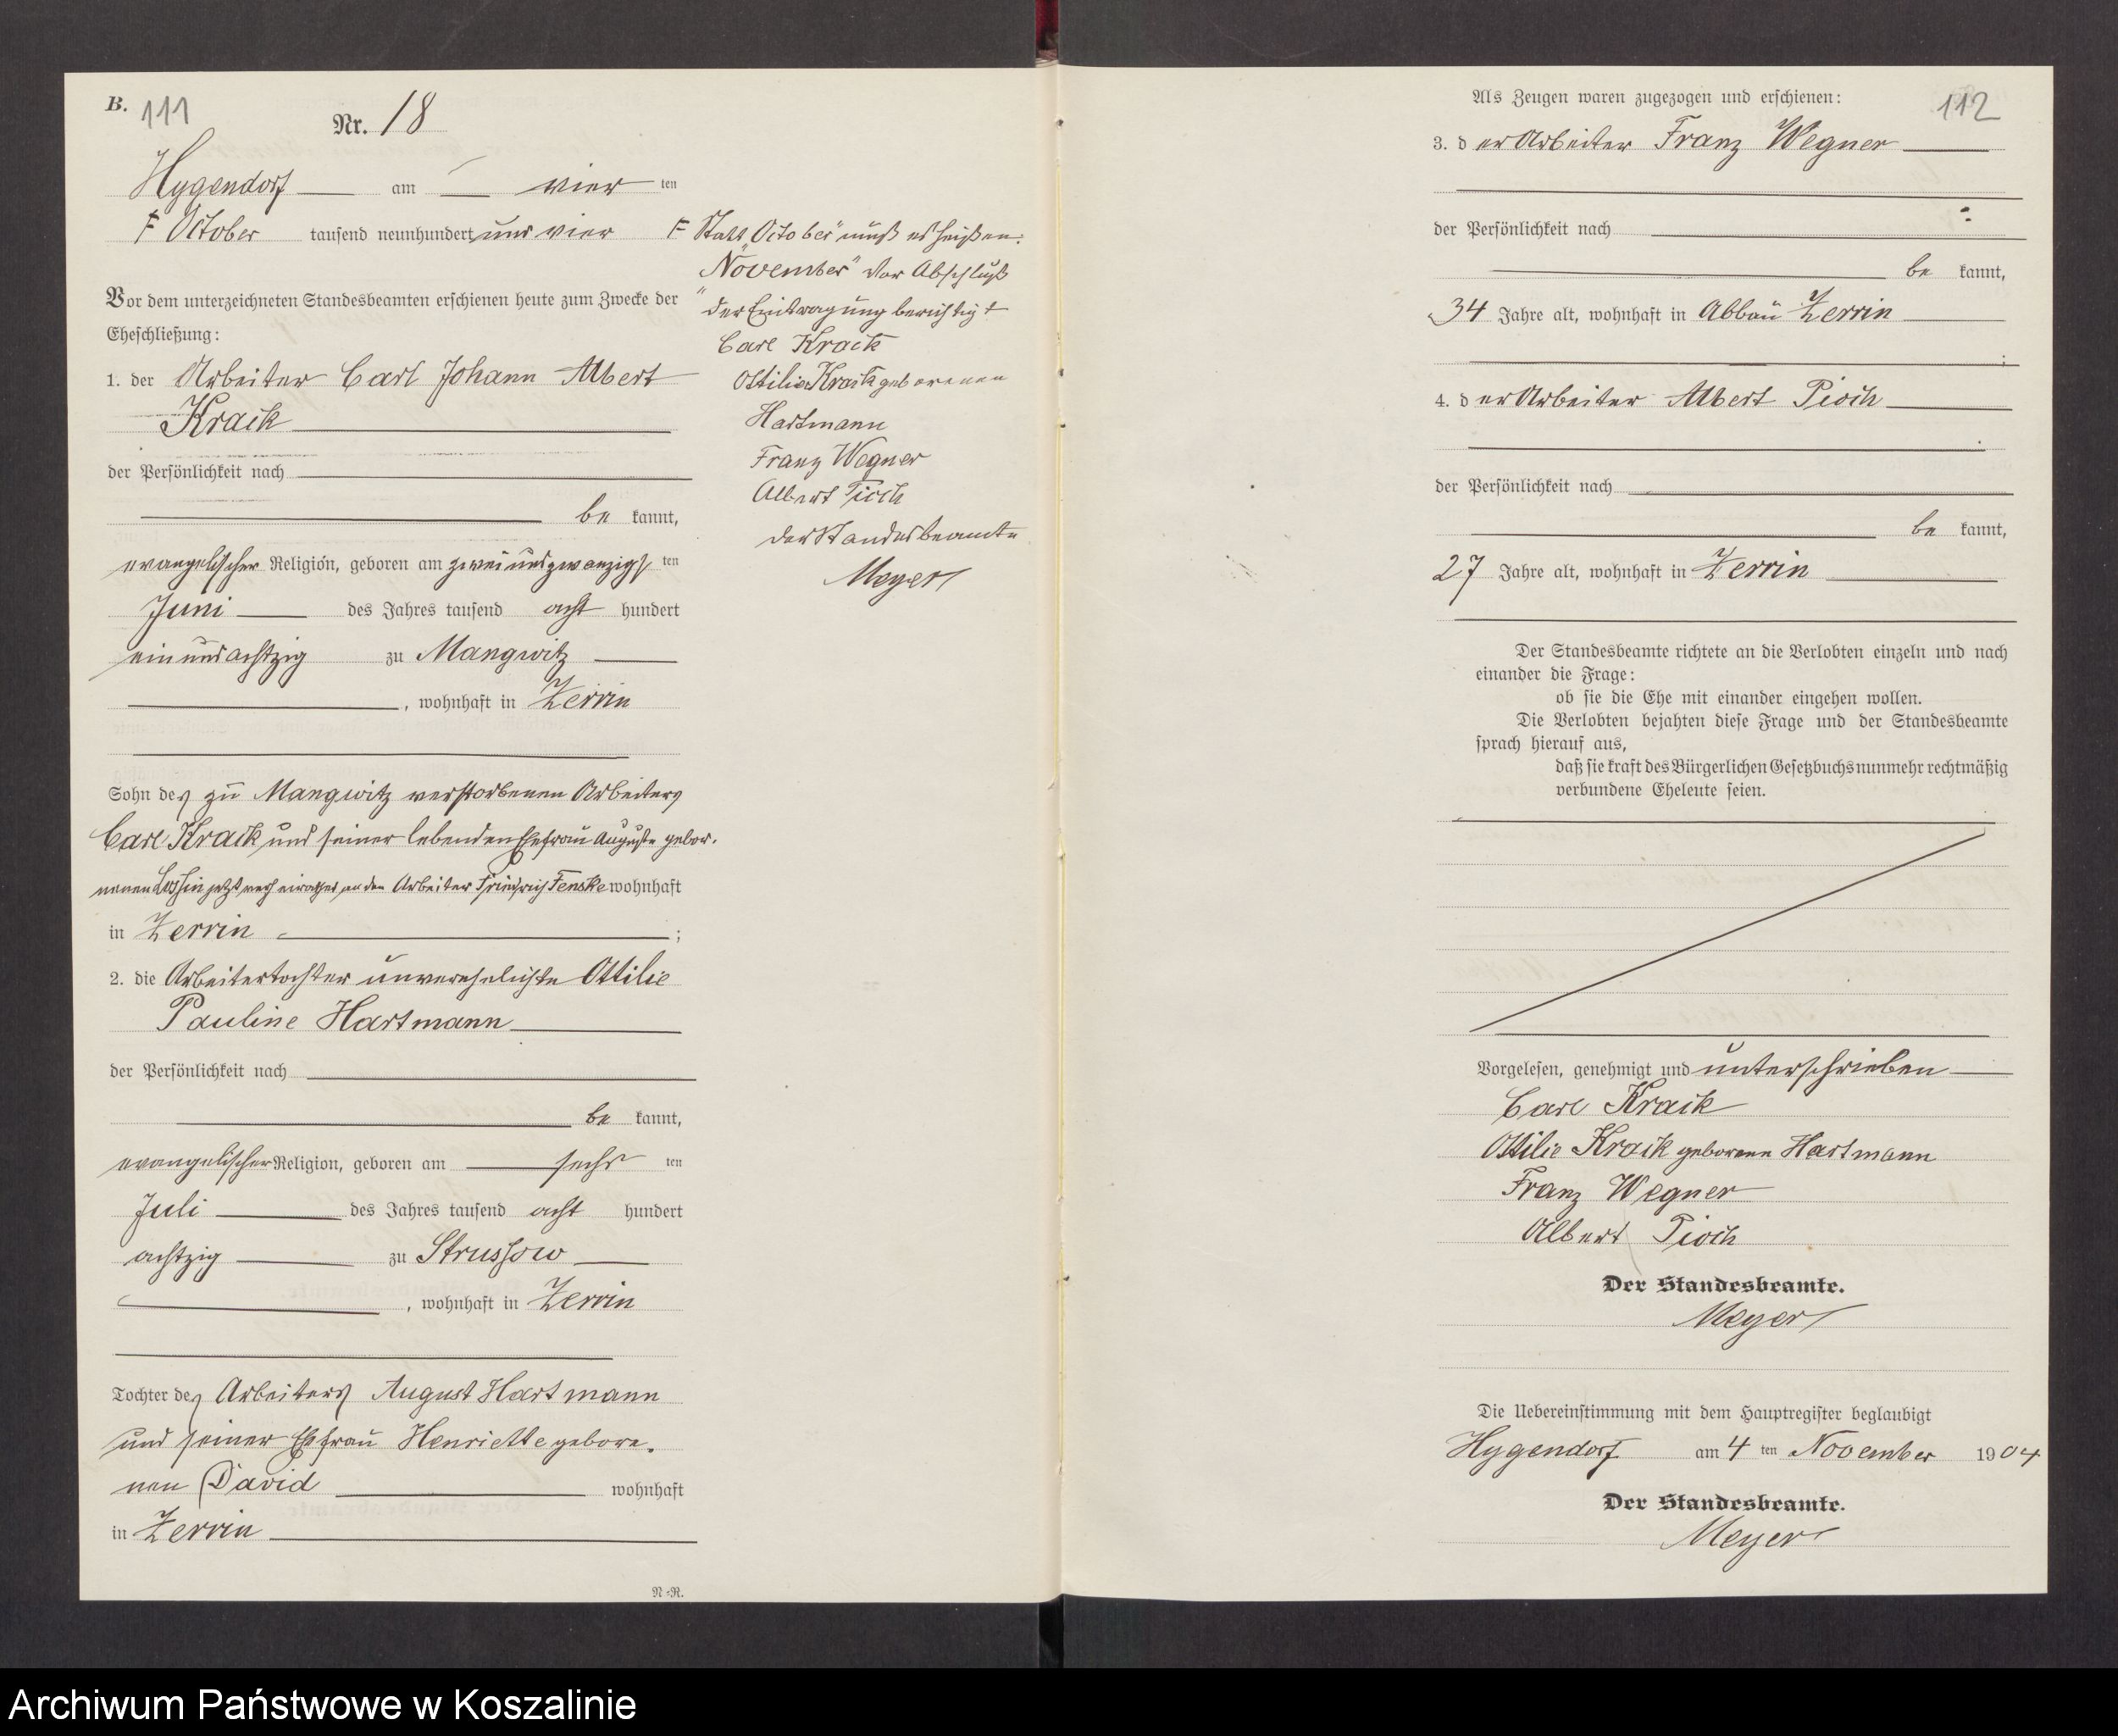 B. 111
Nr. 18
Hygendorf am vier ten
F October tausend neunhundert und vier
Vor dem unterzeichneten Standesbeamten erschienen heute zum Zwecke der
Eheschließung:
1. der Arbeiter Carl Johann Albert
Kraik
der Persönlichkeit nach
be kannt,
evangelischer Religion, geboren am zweiundzwanzigs ten
Juni des Jahres tausend acht hundert
einundachtzig zu Mangwitz
, wohnhaft in Zerrin
Sohn des zu Mangwitz verstorbenen Arbeiters
Carl Kraik und seiner lebenden Ehefrau Auguste gebor.
nenen jetzt verheirathet an den Arbeiter Friedrich Fenske wohnhaft
in Zerrin ;
2. die Arbeitertochter unverehelichte Ottilie
Pauline Hartmann
der Persönlichkeit nach
be kannt,
evangelischer Religion, geboren am sechs ten
Juli des Jahres tausend acht hundert
achtzig zu Strussow
, wohnhaft in Zerrin
Tochter des Arbeiters August Hartmann
und seiner Ehefrau Henriette gebore.
nen David wohnhaft
in Zerrin
N=R.
F Statt „October" muß es heißen:
„November" Vor Abschluß
der Eintragung berichtigt
Carl Kraik
Ottilie Kraik geborenen
Hartmann
Franz Wegner
Albert Pioch
der Standesbeamte
Meyer
Als Zeugen waren zugezogen und erschienen:
112
3. d er Arbeiter Franz Wegner
der Persönlichkeit nach
be kannt,
34 Jahre alt, wohnhaft in Abbau Zerrin
;
4. d er Arbeiter Albert Pioch
der Persönlichkeit nach
be kannt,
27 Jahre alt, wohnhaft in Zerrin
Der Standesbeamte richtete an die Verlobten einzeln und nach
einander die Frage:
ob sie die Ehe mit einander eingehen wollen.
Die Verlobten bejahten diese Frage und der Standesbeamte
sprach hierauf aus,
daß sie kraft des Bürgerlichen Gesetzbuchs nunmehr rechtmäßig
verbundene Eheleute seien.
Vorgelesen, genehmigt und unterschrieben
Carl Kraik
Ottilie Kraik geborene Hartmann
Franz Wegner
Albert Pioch
Der Standesbeamte.
Meyer
Die Uebereinstimmung mit dem Hauptregister beglaubigt
Hygendorf am 4 ten November 1904
Der Standesbeamte.
Meyer
Archiwum Państwowe w Koszalinie